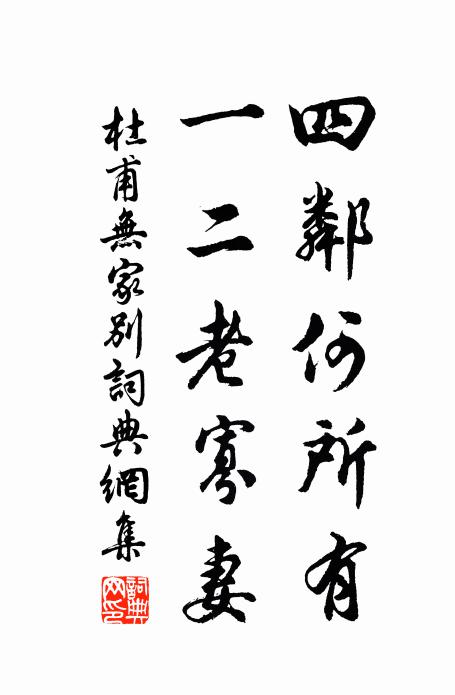 四鄰何所有
一二老寡妻
杜甫無家別詞典網集
詞典
網印